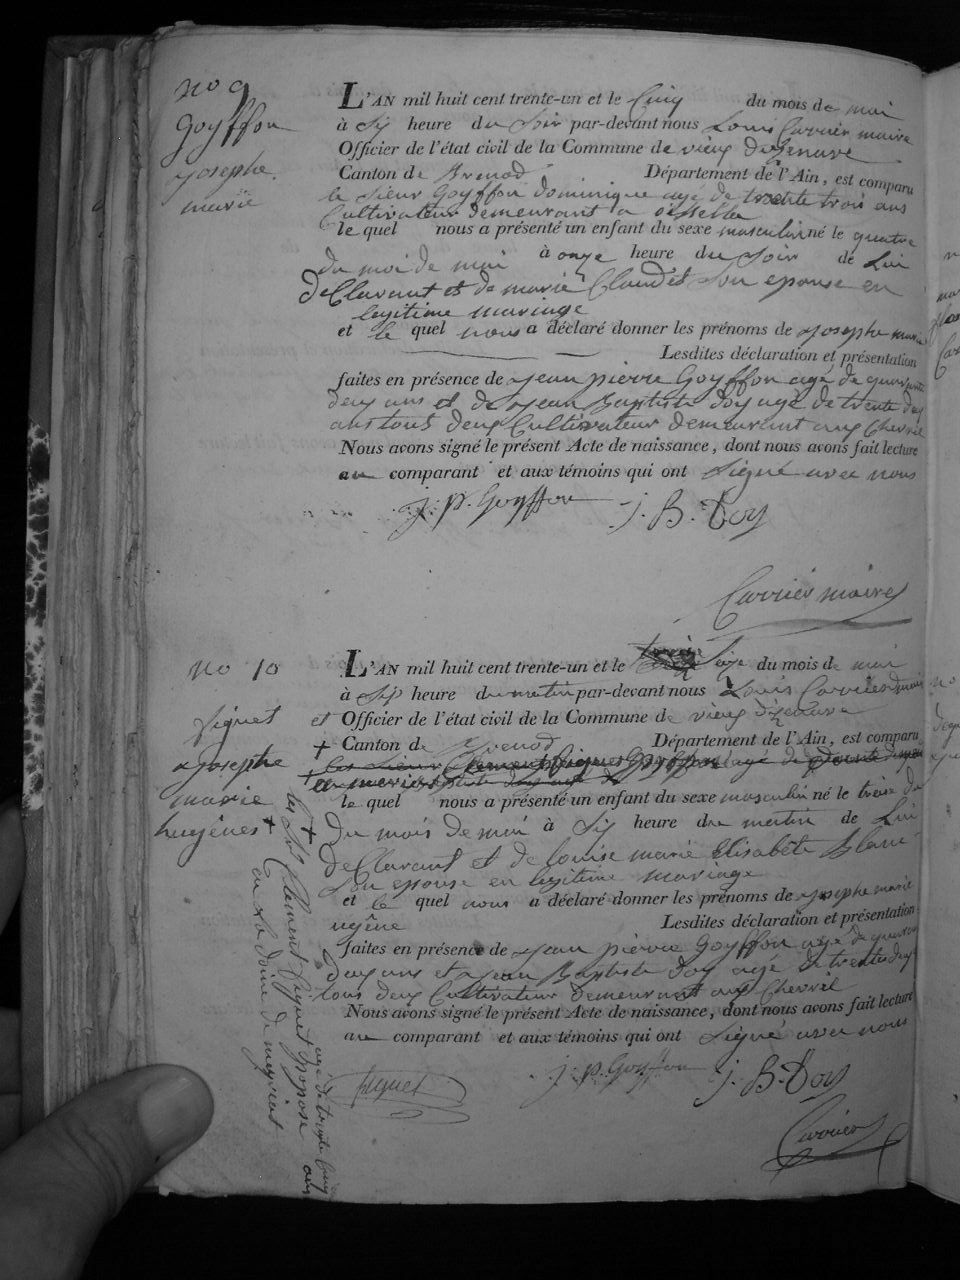 no 9
Goyffon
Josephe
marie
L'AN mil huit cent trente-un et le Cinq du mois de mai
à Six heure du Soir par-devant nous Louis Carrier maire
Officier de l'état civil de la Commune de vieux d'izenave
Canton de Brenod Département de l'Ain, est comparu
le Sieur Goyffon dominique agé de trente trois ans
Cultivateur demeurant a
le quel nous a présenté un enfant du sexe masculin né le quatre
du moi de mai à onze heure du Soir de Lui
deClarant et de marie Claudet Son epouse en
legitime mariage
et le quel nous a déclaré donner les prénoms de Josephe marie
Lesdites déclaration et présentation
faites en présence de Jean pierre Goyffon agé de quarante
deux ans et de Jean Baptiste Doy agé de trente deux
ans tous deux Cultivateur demeurant aux Chevril
Nous avons signé le présent Acte de naissance, dont nous avons fait lecture
au comparant et aux témoins qui ont Signé avec nous
j. p. Goyffon j. B. Doy
Carrier maire
no 10
figuet
Josephe
marie
hugênes +
L'AN mil huit cent trente-un et le Seize du mois de mai
à Six heure du matin par-devant nous Louis Carrier maire
et Officier de l'état civil de la Commune de vieux d'izenave
+ Canton de Brenod Département de l'Ain, est comparu
le quel nous a présenté un enfant du sexe masculin né le treize du
du mois de mai à Six heure du matin de Lui
deClarant et de louise marie Elisabête Blanc
Son epouse en legitime mariage
et le quel nous a déclaré donner les prénoms de Josephe marie
ugêne Lesdites déclaration et présentation
faites en présence de Jean pierre Goyffon agé de quarante
deux ans et Jean Baptiste Doy agé de trente deux
tous deux Cultivateur demeurant aux Chevril
Nous avons signé le présent Acte de naissance, dont nous avons fait lecture
au comparant et aux témoins qui ont Signé avec nous
figuet j. p. Goyffon j. B. Doy
Carrier
+ le Sr Clement figuet preposé
agé de trente Cinq ans
de meyriat